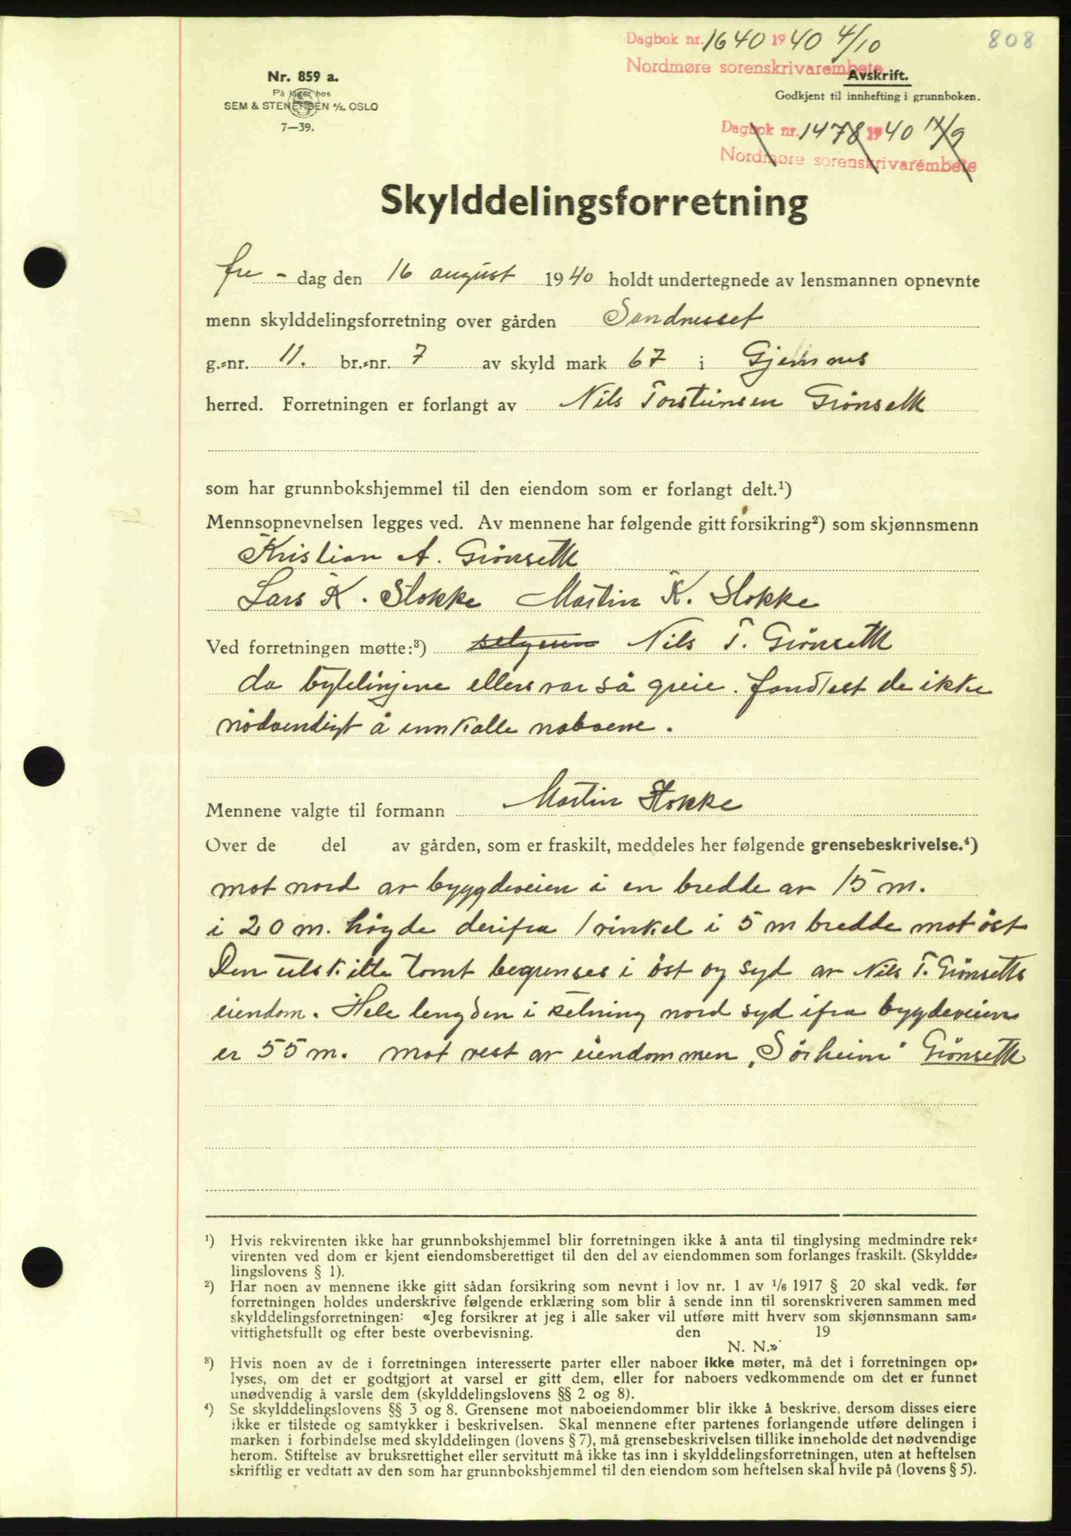 Dagbok nr. 1640 1940 4/10
808
Nordmøre sorenskrivarembete
Nr. 859 a.
Avskrift.
På lager hos
Godkjent til innhefting i grunnboken.
SEM & STENERSEN A/S. OSLO
7—39.
Dagbok nr. 1478 1940 17/9
Nordmøre sorenskrivarembete
Skylddelingsforretning
fre - dag den 16 august 1940 holdt undertegnede av lensmannen opnevnte
menn skylddelingsforretning over gården Sandneset
g.-nr. 11. br.-nr. 7 av skyld mark 67 i Gjemnes
herred. Forretningen er forlangt av Nils Torsteinsen Grönseth
som har grunnbokshjemmel til den eiendom som er forlangt delt.¹)
Mennsopnevnelsen legges ved. Av mennene har følgende gitt forsikring²) som skjønnsmenn
Kristian A. Grönseth
Lars K. Stokke Martin K. Stokke
Ved forretningen møtte:³) Nils T. Grönseth
da bytelinjene ellers var så greie. fandtest de ikke
nödvendigt å innkalle naboene.
Mennene valgte til formann Martin Stokke
Over de del av gården, som er fraskilt, meddeles her følgende grensebeskrivelse.⁴)
mot nord av byggdeveien i en bredde av 15 m.
i 20 m. höyde derifra i vinkel i 5 m bredde mot öst
Den utskilte tomt begrenses i öst og syd av Nils T. Grönseths
eiendom. Hele lengden i retning nord syd ifra byggdeveien
er 55 m. mot vest av eiendommen „Sörheim" Grönseth
¹) Hvis rekvirenten ikke har grunnbokshjemmel blir forretningen ikke å anta til tinglysing medmindre rek-
virenten ved dom er kjent eiendomsberettiget til den del av eiendommen som forlanges fraskilt. (Skyldde-
lingslovens § 1).
²) Har noen av mennene ikke gitt sådan forsikring som nevnt i lov nr. 1 av 1/6 1917 § 20 skal vedk. før
forretningen holdes underskrive følgende erklæring som blir å sende inn til sorenskriveren sammen med
skylddelingsforretningen: «Jeg forsikrer at jeg i alle saker vil utføre mitt hverv som skjønnsmann sam-
vittighetsfullt og efter beste overbevisning. den 19
N. N.»
³) Hvis noen av de i forretningen interesserte parter eller naboer ikke møter, må det i forretningen op-
lyses, om det er godtgjort at varsel er gitt dem, eller for naboers vedkommende om det er funnet
unødvendig å varsle dem (skylddelingslovens §§ 2 og 8).
⁴) Se skylddelingslovens §§ 3 og 8. Grensene mot naboeiendommer blir ikke å beskrive, dersom disses eiere
ikke er tilstede og samtykker i beskrivelsen. Skal mennene efter partenes forlangende utføre delingen i
marken i forbindelse med skylddelingen (lovens § 7), må grensebeskrivelsen tillike inneholde det nødvendige
herom. Stiftelse av bruksrettighet eller servitutt må ikke tas inn i skylddelingsforretningen, uten at heftelsen
skriftlig er vedtatt av den som har grunnbokshjemmel til den eiendom som heftelsen skal hvile på (lovens § 5).